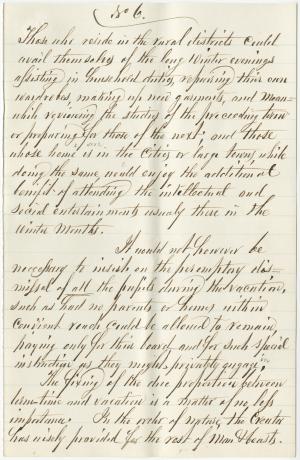 No 6.
Those who reside in the rural districts could
avail themselves of the long Winter evenings
assisting in household duties, repairing their own
wardrobes, making up new garments, and Mean-
while reviewing the studies of the preceeding term
or preparing for those of the next; and those
whose home is in the Cities or large towns, while
doing the same, would enjoy the additional
benefit of attending the intellectual and
social entertainments usualy there in the
Winter Months.
It would not, however be
necessary to insist on the peremptory dis-
missal of all the pupils during the vacation,
such as had no parents or homes within
convenient reach could be allowed to remain,
paying only for their board and for such special
instruction as they might privately engage.
The fixing of the due proportion between
term-time and vacation is a matter of no less
importance. In the order of nature, the Creator
has wisely provided for the rest of Man & beasts.